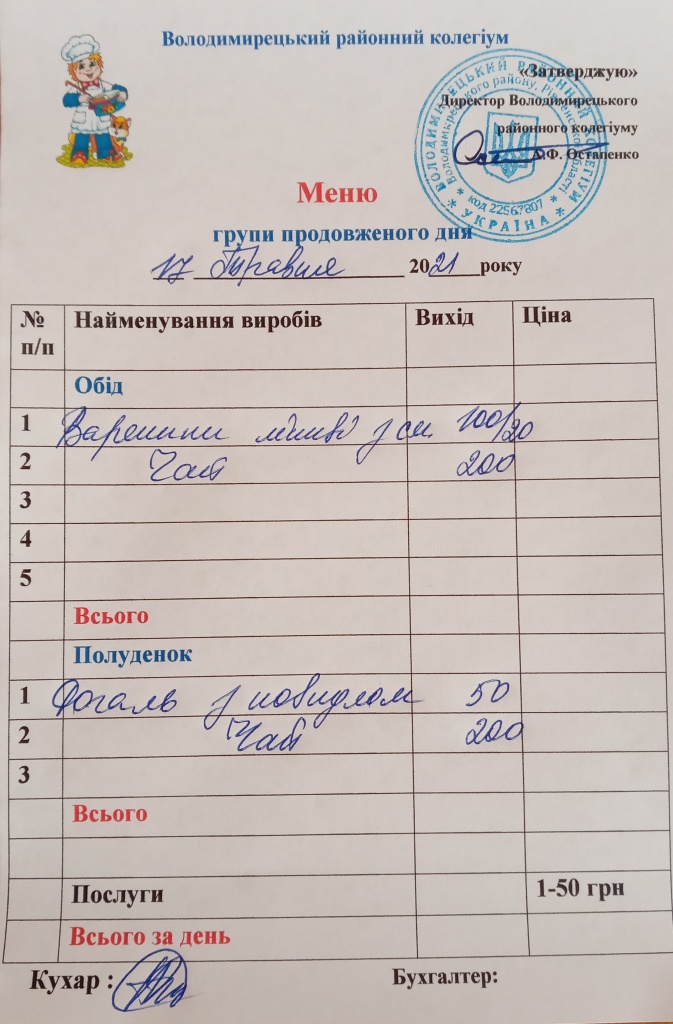 Володимирецький районний колегіум
«Затверджую»
Директор Володимирецького
районного колегіуму
А.Ф. Остапенко
ВОЛОДИМИРЕЦЬКИЙ РАЙОННИЙ КОЛЕГІУМ
Володимирецького району, Рівненської області
код 22567807
* УКРАЇНА *
Меню
групи продовженого дня
17 Травня 2021 року
№ п/п Найменування виробів Вихід Ціна
Обід
1 Вареники ліниві з см. 100/20
2 Чай 200
3
4
5
Всього
Полуденок
1 Рогаль з повидлом 50
2 Чай 200
3
Всього
Послуги 1-50 грн
Всього за день
Кухар : Бухгалтер: